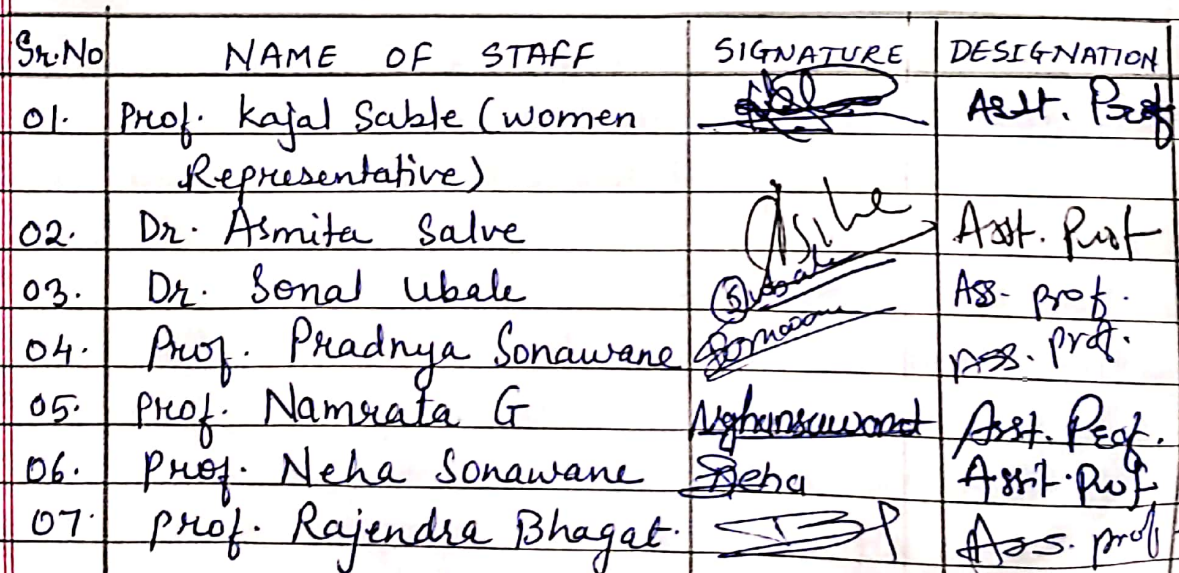 Sr.No NAME OF STAFF SIGNATURE DESIGNATION
01. Prof. Kajal Sable (women Asst. Prof
Representative)
02. Dr. Asmita Salve Asst. Prof
03. Dr. Sonal Ubale Ass- prof.
04. Prof. Pradnya Sonawane Sonawane Ass. prof.
05. Prof. Namrata G Asst. Prof.
06. Prof. Neha Sonawane Neha Assit. Prof
07. Prof. Rajendra Bhagat. Ass. prof